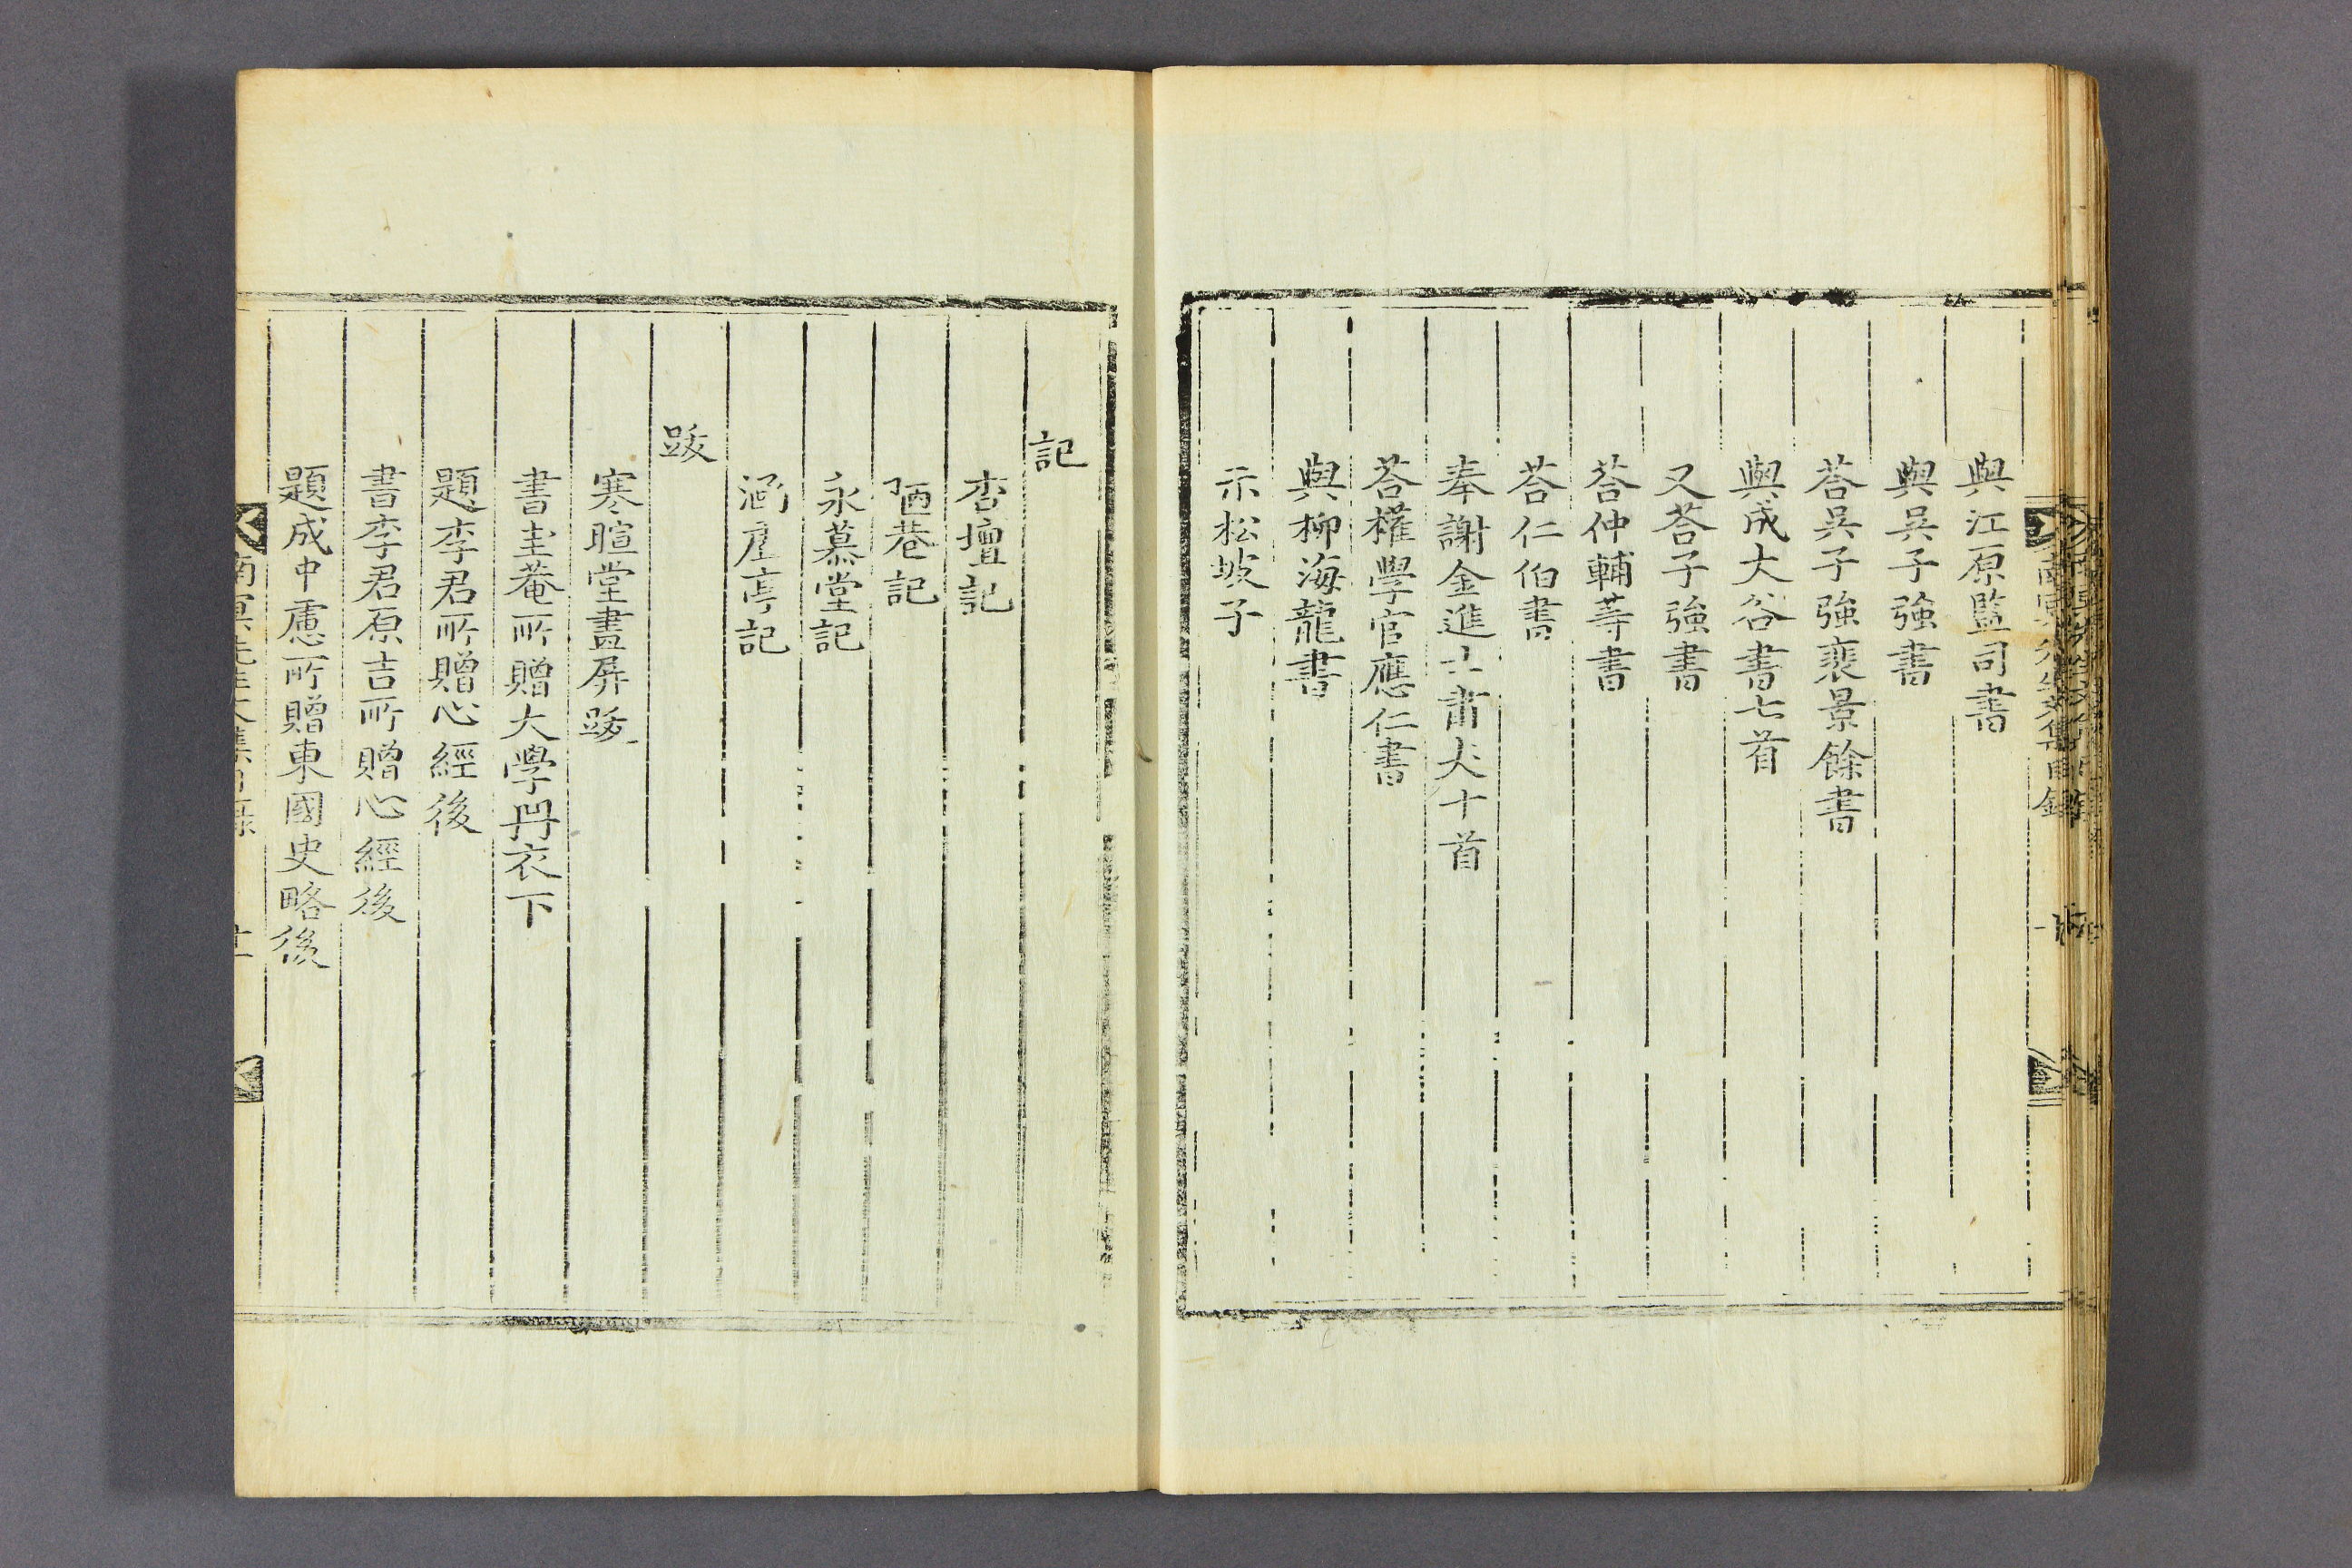 與江原監司書
與吳子強書
荅吳子強裵景餘書
與成大谷書七首
又荅子強書
荅仲輔等書
荅仁伯書
奉謝金進士肅夫十首
荅權學官應仁書
與柳海龍書
示松坡子
記
杏壇記
陋巷記
永慕堂記
涵虛亭記
跋
寒暄堂畫屏跋
書圭菴所贈大學冊衣下
題李君所贈心經後
書李君原吉所贈心經後
題成中慮所贈東國史略後
南冥先生文集目錄